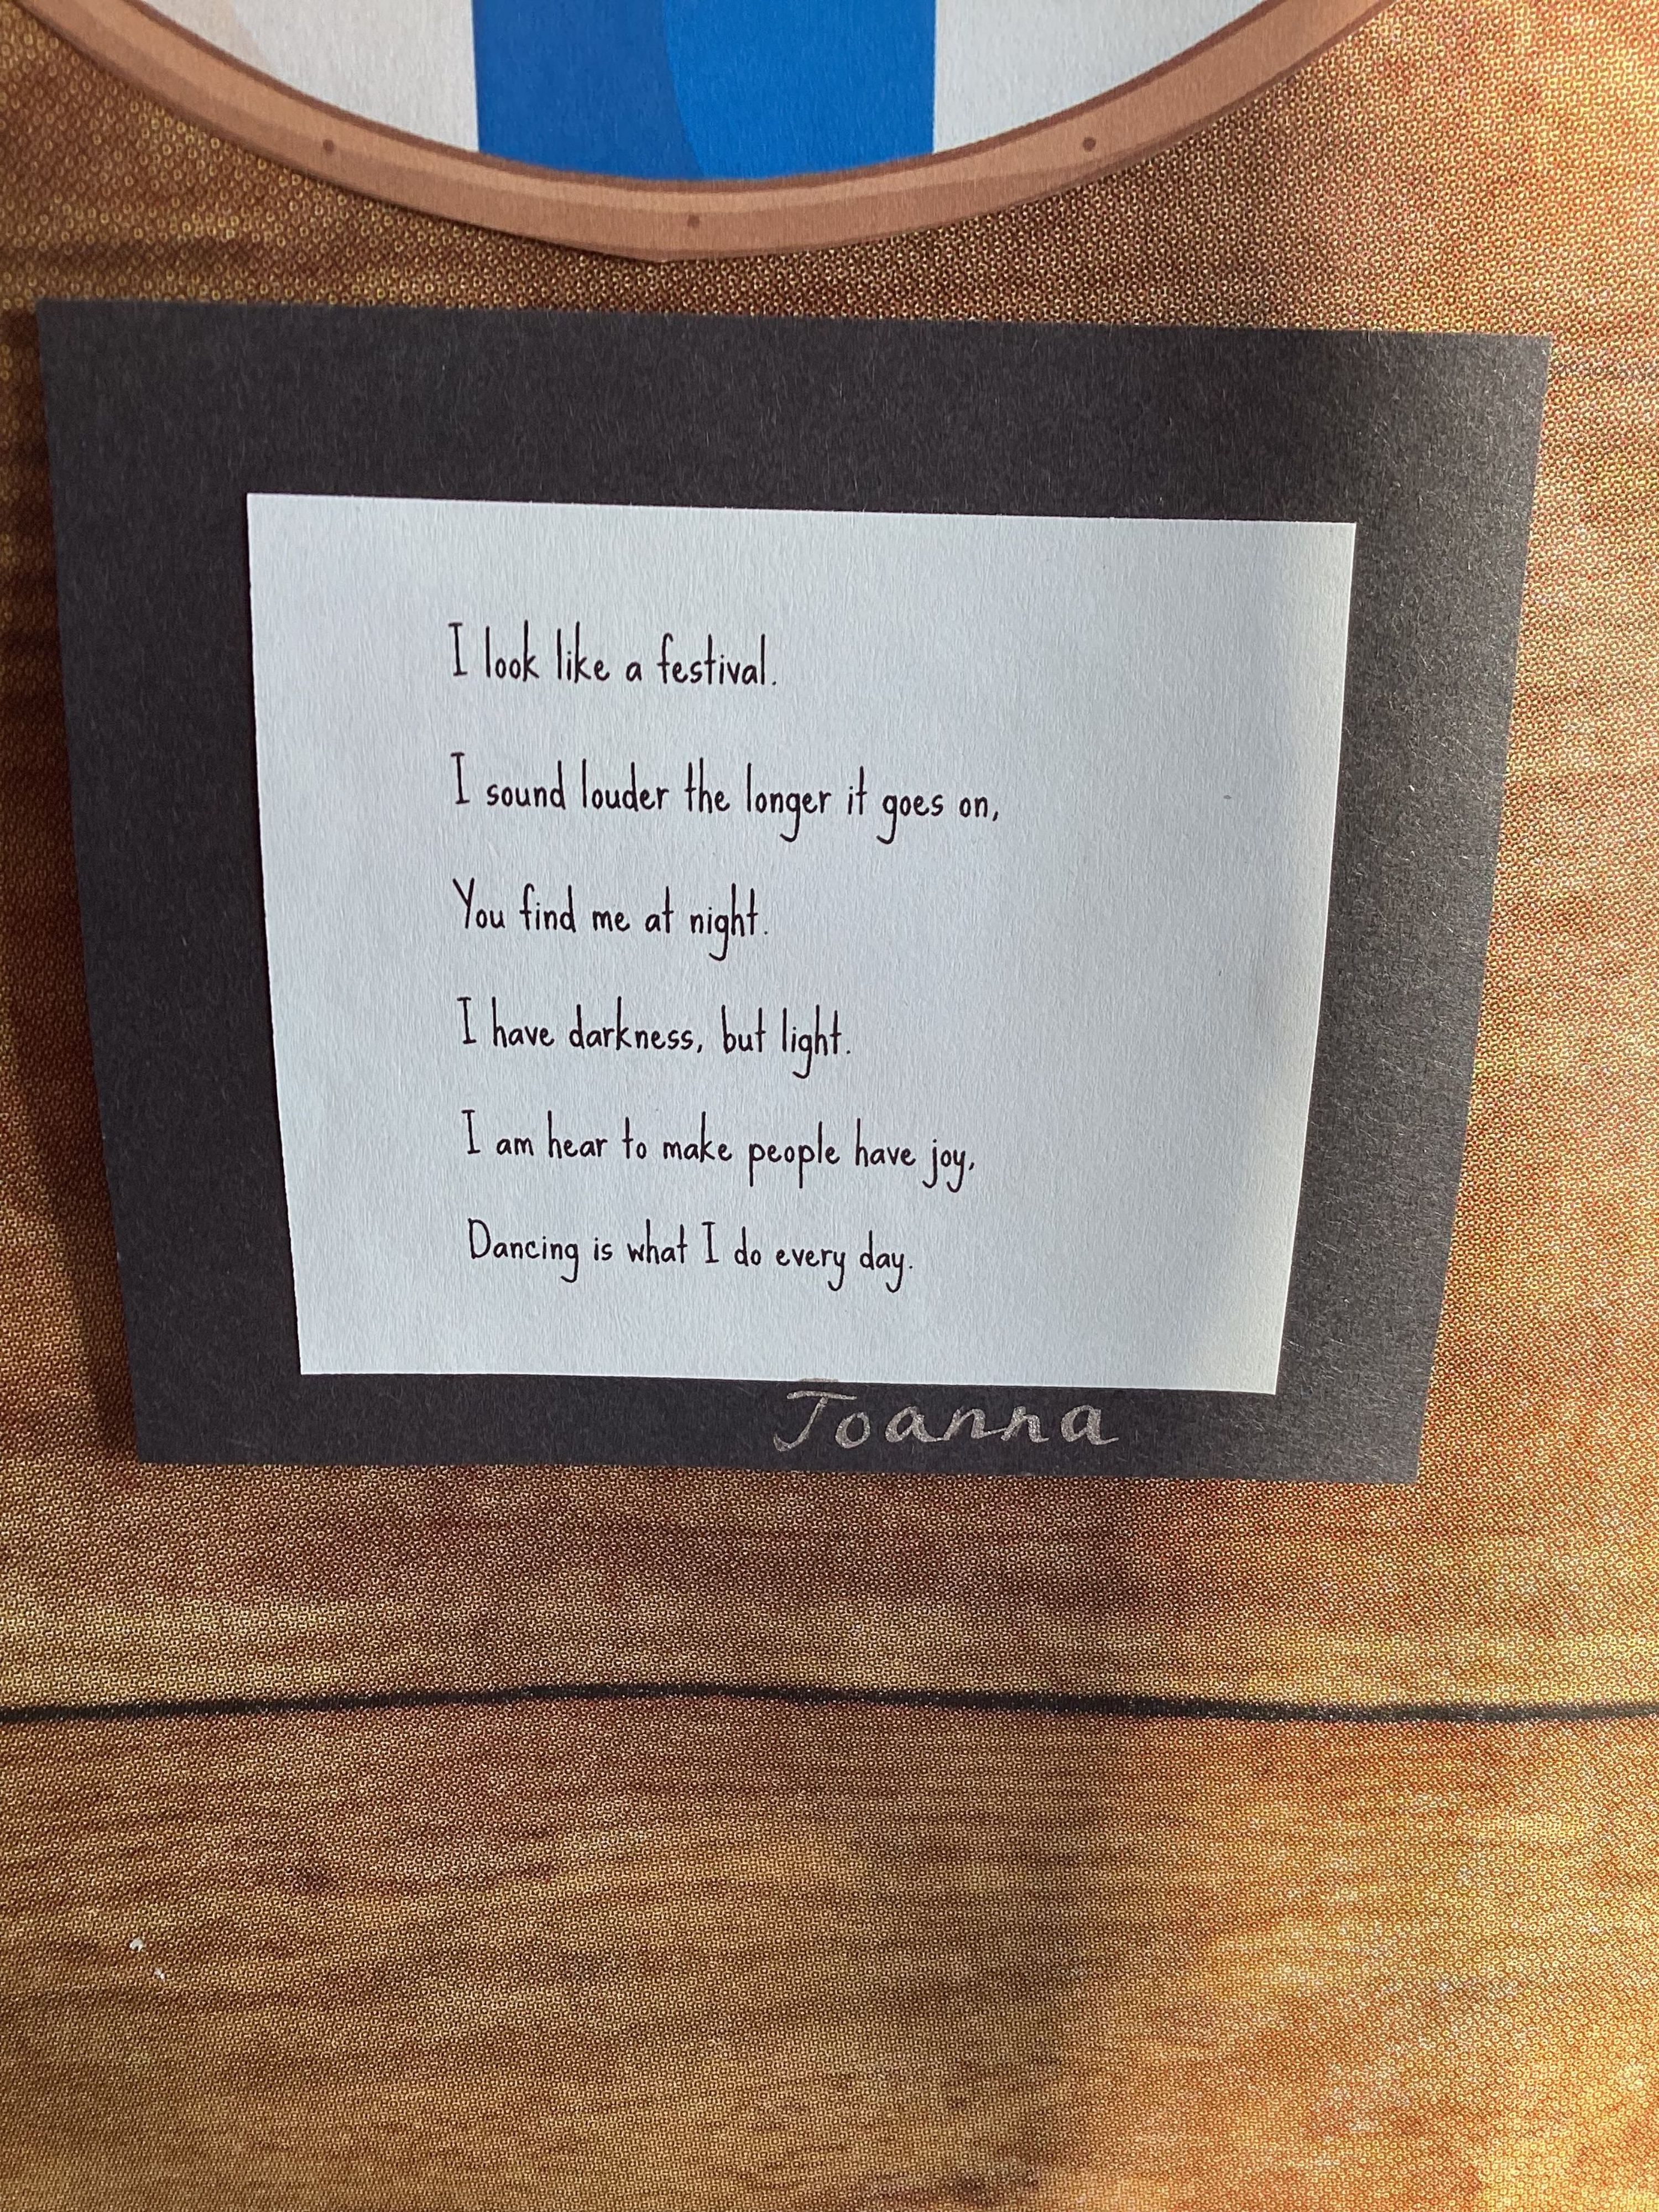 I look like a festival.
I sound louder the longer it goes on,
You find me at night.
I have darkness, but light.
I am hear to make people have joy,
Dancing is what I do every day.
Joanna